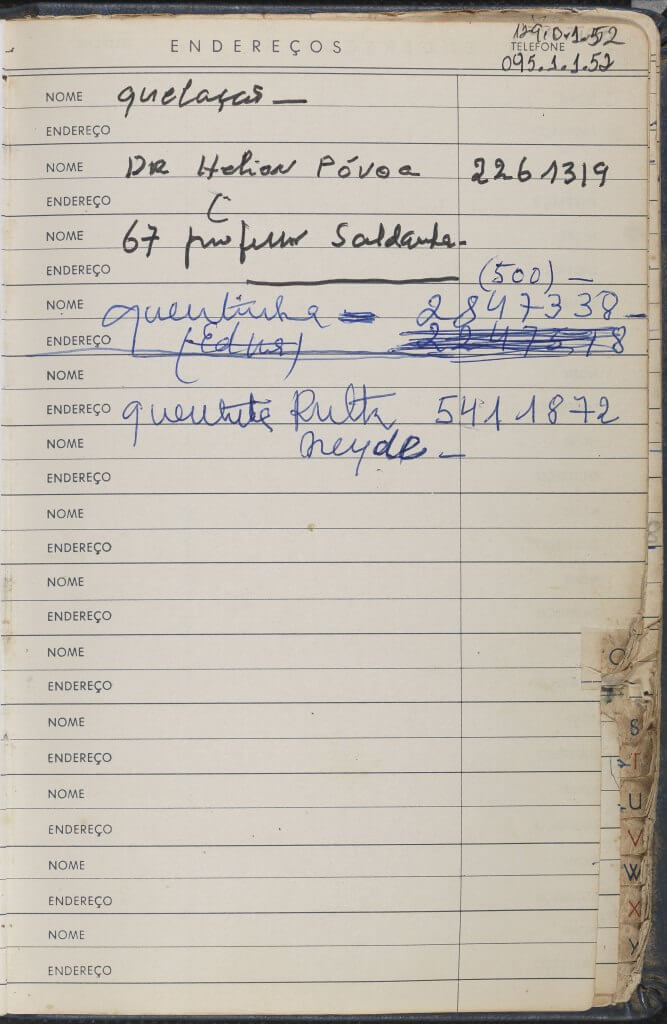 ENDEREÇOS
TELEFONE
095.1.1.52
NOME quelaçaõ —
ENDEREÇO
NOME DR Helion Póvoa 2261319
ENDEREÇO
NOME 67 professor Saldanha -
ENDEREÇO (500) —
NOME quentinha = 2847338 -
ENDEREÇO (Edna)
NOME
ENDEREÇO Ruth 5411872
NOME Neyde -
ENDEREÇO
NOME
ENDEREÇO
NOME
ENDEREÇO
NOME
ENDEREÇO
NOME
ENDEREÇO
NOME
ENDEREÇO
NOME
ENDEREÇO
NOME
ENDEREÇO
Q
S
T
U
V
W
X
Y